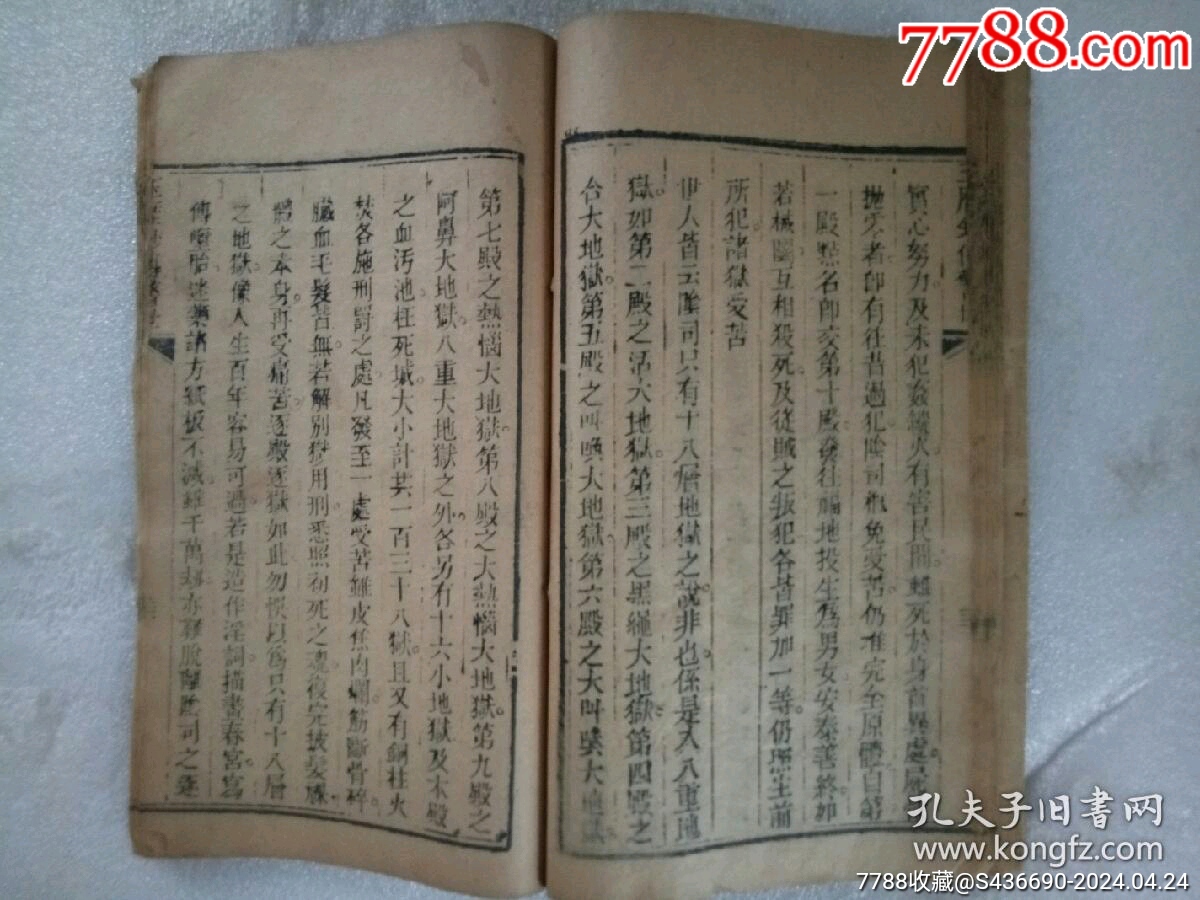 7788.com
實心努力及未犯姦縱火有害民間雖死於身首異處屍
拋零者即有往昔過犯陰司概免受苦仍准完全原體自第
一殿點名即交第十殿發往福地投生為男女安泰善終如
若械鬬互相殺死及從賊之叛犯各皆罪加一等仍照生前
所犯諸獄受苦
世人皆云陰司只有十八層地獄之說非也係是入八重地
獄如第二殿之活大地獄第三殿之黑繩大地獄第四殿之
合大地獄第五殿之叫喚大地獄第六殿之大叫喚大地獄
第七殿之熱惱大地獄第八殿之大熱惱大地獄第九殿之
阿鼻大地獄八重大地獄之外各另有十六小地獄及本殿
之血污池枉死城大小計共一百三十八獄且又有銅柱火
焚各施刑罰之處凡發至一處受苦雖皮焦肉爛筋斷骨碎
臟血毛髮皆無若解別獄用刑悉照初死之魂復完披髮
體之本身再受痛苦逐殿逐獄如此勿悞以為只有十八層
之地獄像人生百年容易可過若是造作淫詞描畫春宮寫
傳墮胎迷藥諸方紙板不滅雖千萬劫亦難脫離陰司之
孔夫子旧書网
www.kongfz.com
7788收藏@S436690-2024.04.24